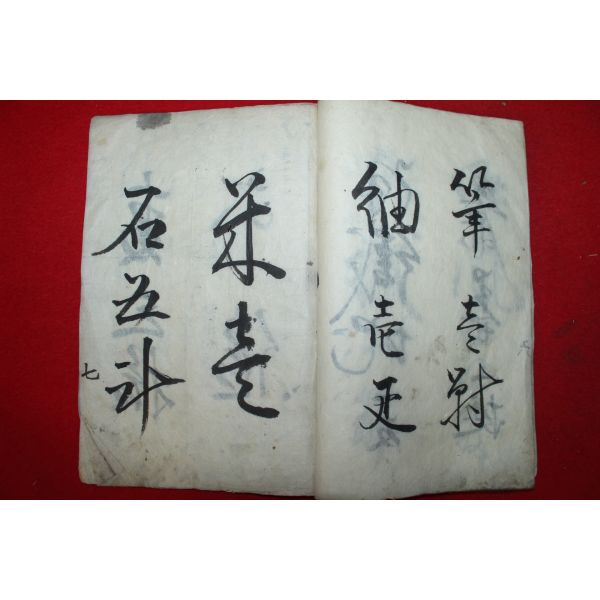 筆壹對
紬壱疋
米壹
石五斗
七